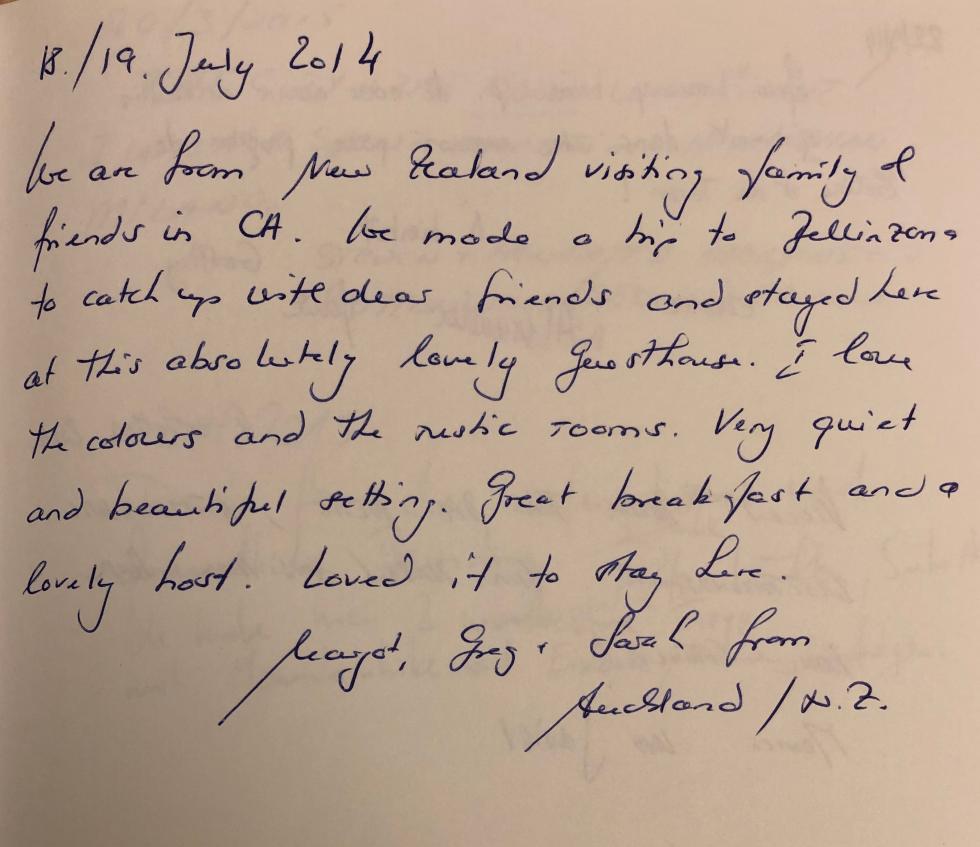 18./19. July 2014
We are from New Zealand visiting family &
friends in CH. We made a trip to Bellinzona
to catch up with dear friends and stayed here
at this absolutely lovely Guesthouse. I love
the colours and the rustic rooms. Very quiet
and beautiful setting. Great breakfast and a
lovely host. Loved it to stay here.
Margot, Greg + Sarah from
Auckland / N.Z.